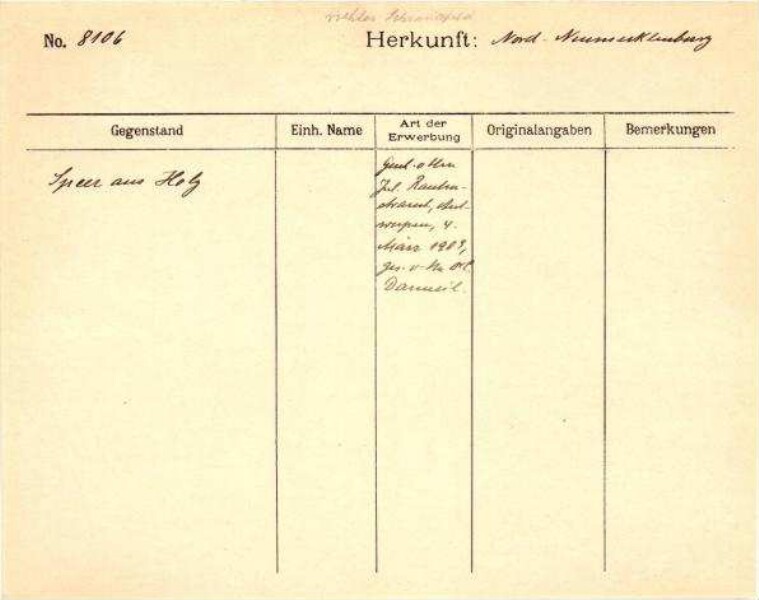 No. 8106
Herkunft: Nord-Neumecklenburg
Gegenstand
Einh. Name
Art der Erwerbung
Originalangaben
Bemerkungen
Speer aus Holz
Jul.
strauch, Ant-
werpen, 4.
März 1908,
ges. v.